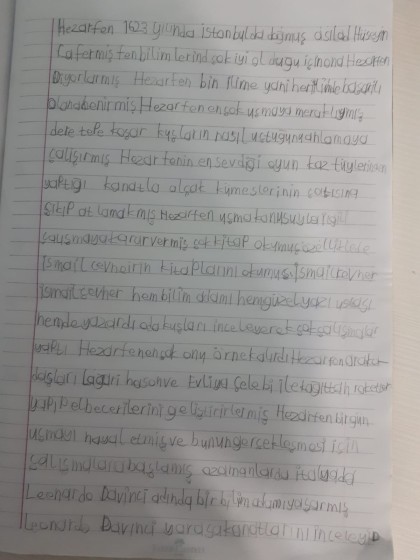 Hezarfen 1623 yılında istanbulda doğmuş asıl adı Hüseyin
Cafermiş fen bilimlerind çok iyi olduğu için ona Hezarfen
Diyorlarmış Hezarfen bin ilime yani her ilimle başarılı
olana denirmiş Hezarfen en çok uçmaya meraklıymış
dere tepe koşar kuşların nasıl uçtuğunu anlamaya
çalışırmış Hezarfenin en sevdiği oyun kaz tüylerinden
yaptığı kanatla alçak kümeslerinin çatısına
çıkıp atlamakmış Hezarfen uçma konusuyla ilgili
çalışmaya karar vermiş çok kitap okumuş özellikle
ismail cevherin kitaplarını okumuş. İsmail cevher
ismail cevher hem bilim adamı hem güzel yazı ustası
hemde yazardı oda kuşları inceleyerek çok çalışmalar
yaptı Hezarfen en çok onu örnek alırdı Hezarfen arka
daşları lagari hasan ve Evliya çelebi ile kağıttan roketler
yapıp el becerilerini geliştirirlermiş Hezarfen birgün
uçmayı hayal etmiş ve bunun gerçekleşmesi için
çalışmalara başlamış o zamanlarda italyada
Leonardo Davinci adında bir bilim adamı yaşarmış
Leonardo Davinci yarasa kanatlarını inceleyip